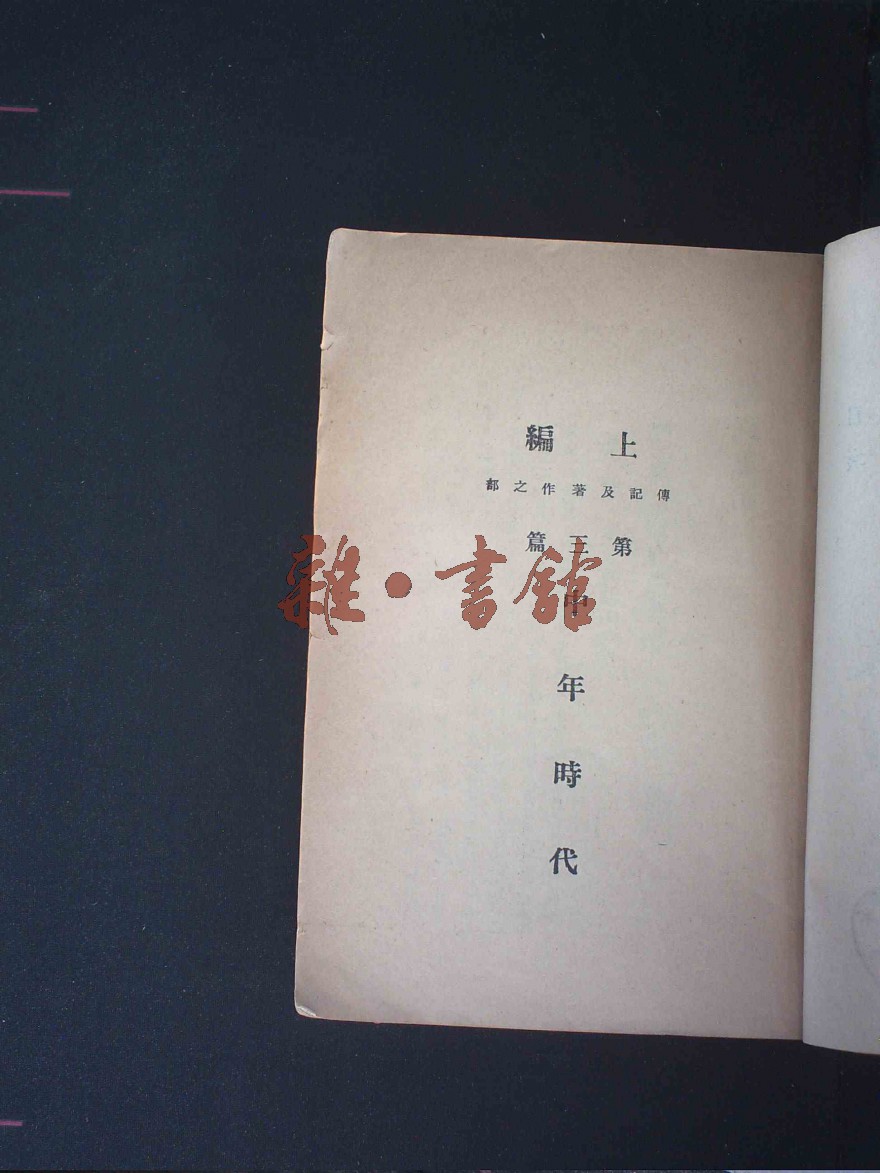 上編
傳記及著作之部
第三篇
中年時代
雜·書館